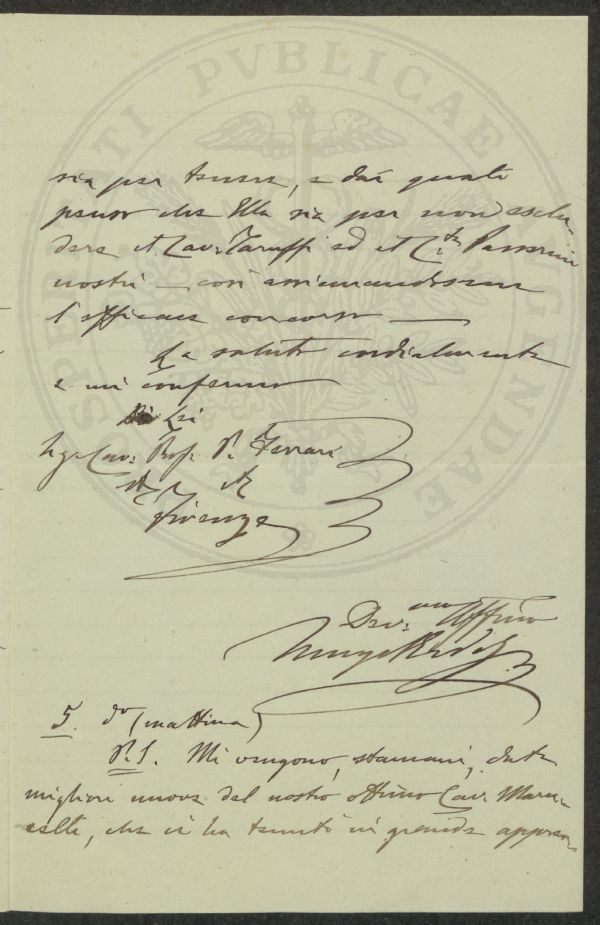 sia per tenere, e dai quali
penso che Ella sia per non esclu-
dere il Cav. Taruffi ed il Passerini
nostri — così
l'efficace concorso —
La saluto cordialmente
e mi confermo
Di Lei
Cav. Prof. P. Ferrari
Firenze
Dev.mo Aff.mo
5. do (mattina)
P.S. Mi vengono, stamani, date
migliori nuove del nostro ottimo Cav. Maru-
celli, che ci ha tenuti in grande appren-